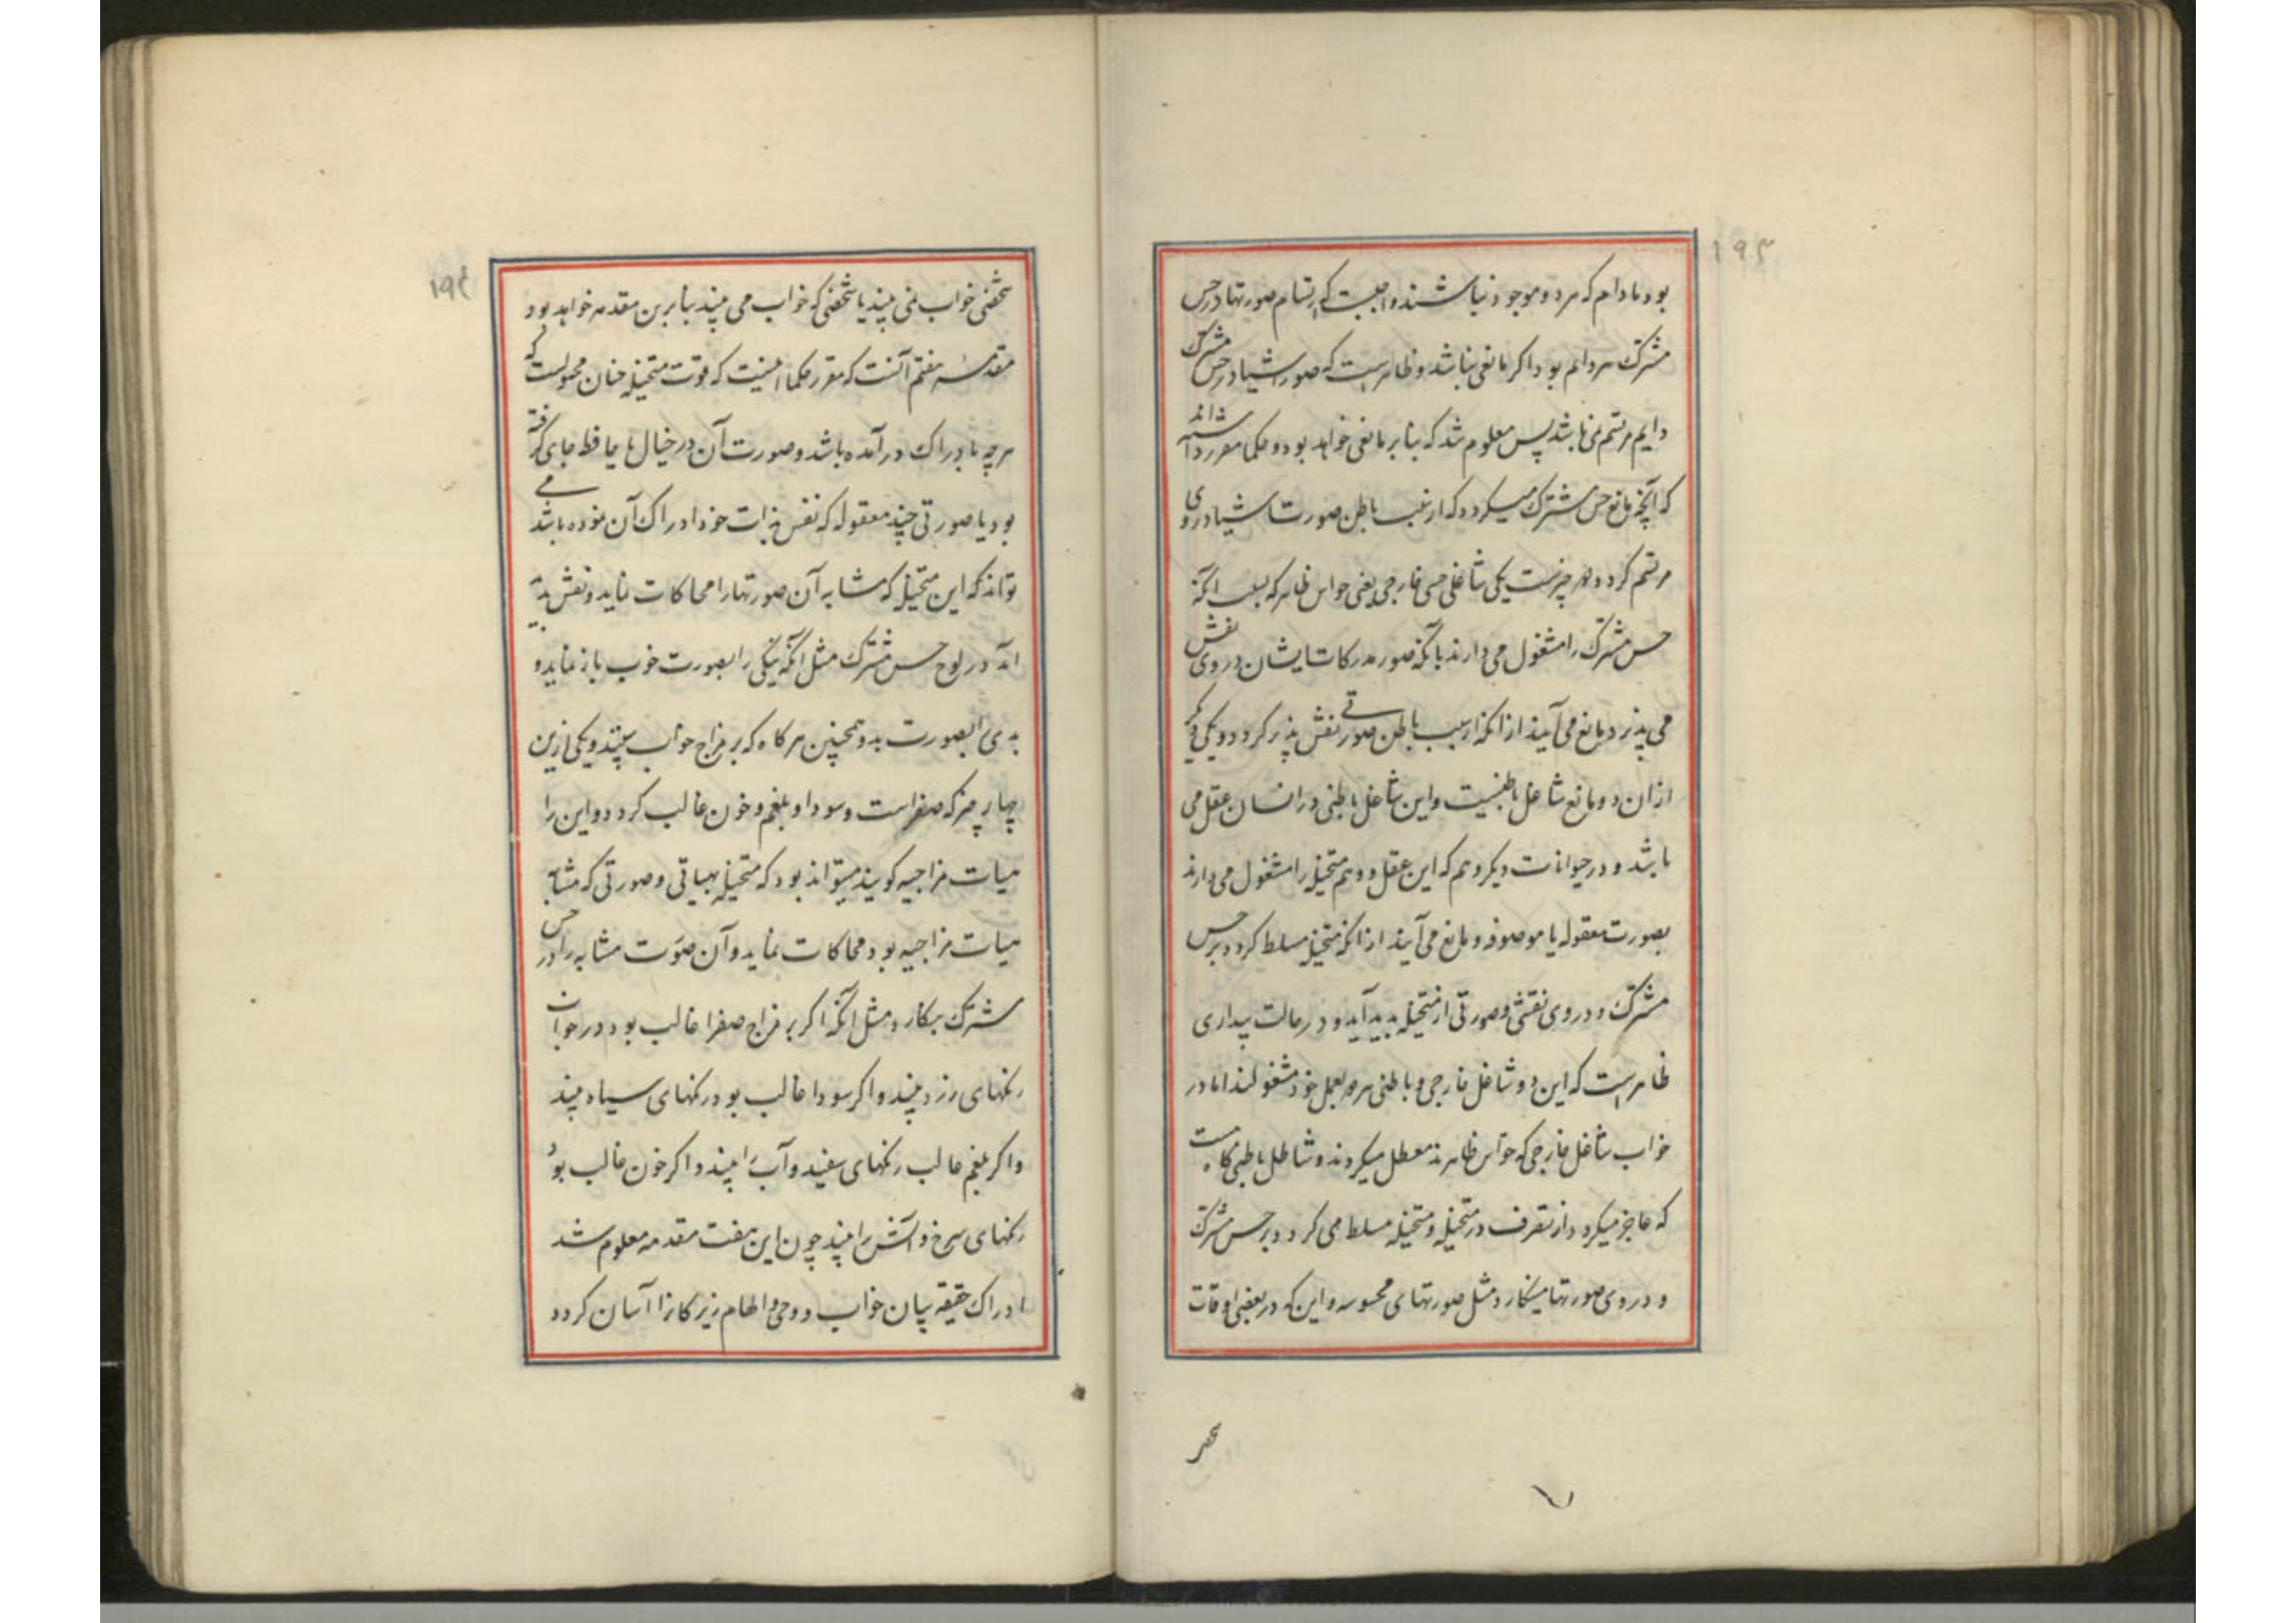 ۱۹۳
بود مادام که هر دو موجود نباشند واجبست که ارتسام صورتها در حس
مشترک هر دایم بود اکر مانعی نباشد و ظاهر است که صور اشیا در حس مشترک
دایم مرتسم نمی باشد پس معلوم شد که بنابر مانعی خواهد بود و حکما مقرر داشته اند
که آنچه مانع حس مشترک میکردد که از غیب باطن صورت اشیا در وی
مرتسم کردد دو چیزست یکی شاغلی حسی خارجی یعنی حواس ظاهر که بسبب آنکه
حس مشترک را مشغول می دارند بآنکه صور مدرکات ایشان در وی نقش
می پذیرد مانع می آیند از آنکه از سبب باطن صورتی نقش پذیر کردد و یکی دیکر
از آن دو مانع شاغل باطنیست و این شاغل باطنی در انسان عقل می
باشد و در حیوانات دیکر وهم که این عقل و وهم متخیله را مشغول می دارند
بصورت معقوله یا موصوفه و مانع می آیند از آنکه متخیله مسلط کردد بر حس
مشترک و در وی نقشی و صورتی از متخیله پدید آید و در حالت بیداری
ظاهر است که این دو شاغل خارجی و باطنی هر دو بعمل خود مشغولند اما در
خواب شاغل خارجی که حواس ظاهرند معطل میکردند و شاغل باطنی کاه هست
که عاجز میکردد از تصرف در متخیله و متخیله مسلط می کردد بر حس مشترک
و در وی صورتها مینکارد مثل صورتهای محسوسه و این که در بعضی اوقات
۱۹۴
شخصی خواب نمی بیند یا شخصی که خواب می بیند بنابرین مقدمه خواهد بود
مقدمه هفتم آنست که مقرر حکما اینست که قوت متخیله چنان مجبولست که
هر چه بادراک در آمده باشد و صورت آن در خیال یا حافظه جای کرفته
بود یا صورتی چند معقوله که نفس بذات خود ادراک آن نموده باشد می
تواند که این متخیله که مشابه آن صورتها را محاکات نماید و نقش پدید
آید در لوح حس مشترک مثل آنکه نیکی را بصورت خوب باز نماید و
بدی را بصورت بد و همچنین هر کاه که بر مزاج خواب بیننده یکی ازین
چهار چیز که صفراست و سودا و بلغم و خون غالب کردد و این را
هیات مزاجیه کویند میتواند بود که متخیله بهیاتی و صورتی که مشابه
هیات مزاجیه بود محاکات نماید و آن صورت مشابه را در حس
مشترک بنکارد مثل آنکه اکر بر مزاج صفرا غالب بود در خواب
رنکهای زرد بیند و اکر سودا غالب بود رنکهای سیاه بیند
و اکر بلغم غالب رنکهای سفید و آب را بیند و اکر خون غالب بود
رنکهای سرخ و آتش را بیند چون این هفت مقدمه معلوم شد
ادراک حقیقه بیان خواب و وحی و الهام زیرکانرا آسان کردد